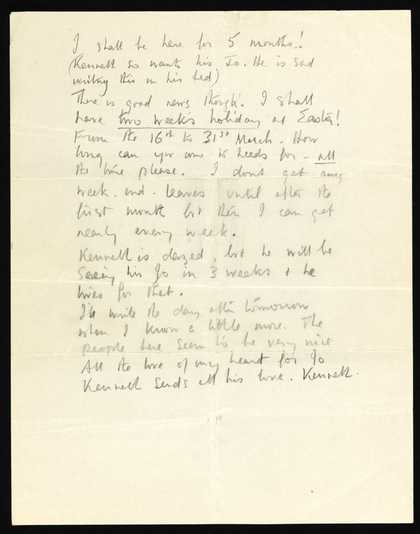 I shall be here for 5 months!
(Kenneth so wants his Jo. He is sad
writing this on his bed)
There is good news though. I shall
have two weeks holiday at Easter!
From the 16th to 31st March. How
long can you come to Leeds for - all
the time please. I dont get any
week-end-leaves until after the
first month but then I can get
nearly every week.
Kenneth is dazed, but he will be
Seeing his Jo in 3 weeks & he
lives for that.
I'll write the day after tomorrow
when I know a little more. The
people here seem to be very nice
All the love of my heart for Jo
Kenneth sends all his love. Kenneth.